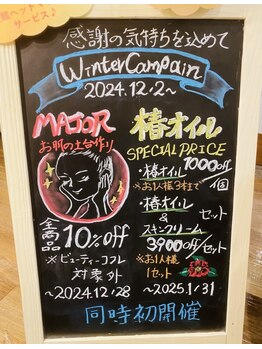 サービス♪
感謝の気持ちを込めて
Winter Campain
2024.12.2~
MAJOR
お肌の土台作り
全商品 10%off
※ビューティーコフレ
対象外
~2024.12/28
椿オイル
SPECIAL PRICE
・椿オイル 1000off/個
※お1人様3本まで
・椿オイル
&
スキンクリーム セット
3900off/セット
※お1人様
1セット
~2025.1/31
同時初開催